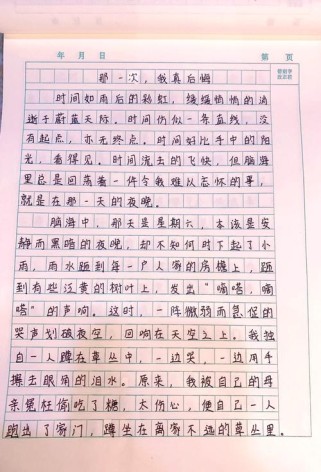 年 月 日
第 页
那一次，我真后悔
时间如雨后的彩虹，缓缓悄悄的消
逝于蔚蓝天际。时间仿似一条直线，没
有起点，亦无终点。时间好比手中的阳
光，看得见。时间流去的飞快，但脑海
里总是回荡着一件令我难以忘怀的事，
就是在那一天的夜晚。
脑海中，那天是星期六，本该是安
静而黑暗的夜晚，却不知何时下起了小
雨，雨水跖到每一户人家的房檐上，跖
到有些泛黄的树叶上，发出“嘀嗒，嘀
嗒”的声响。这时，一阵微弱而急促的
哭声划破夜空，回响在天空之上。我独
自一人蹲在草丛中，一边哭，一边用手
擦去眼角的泪水。原来，我被自己的母
亲冤枉偷吃了糖，太伤心，便自己一人
跑出了家门，蹲坐在离家不远的草丛里。